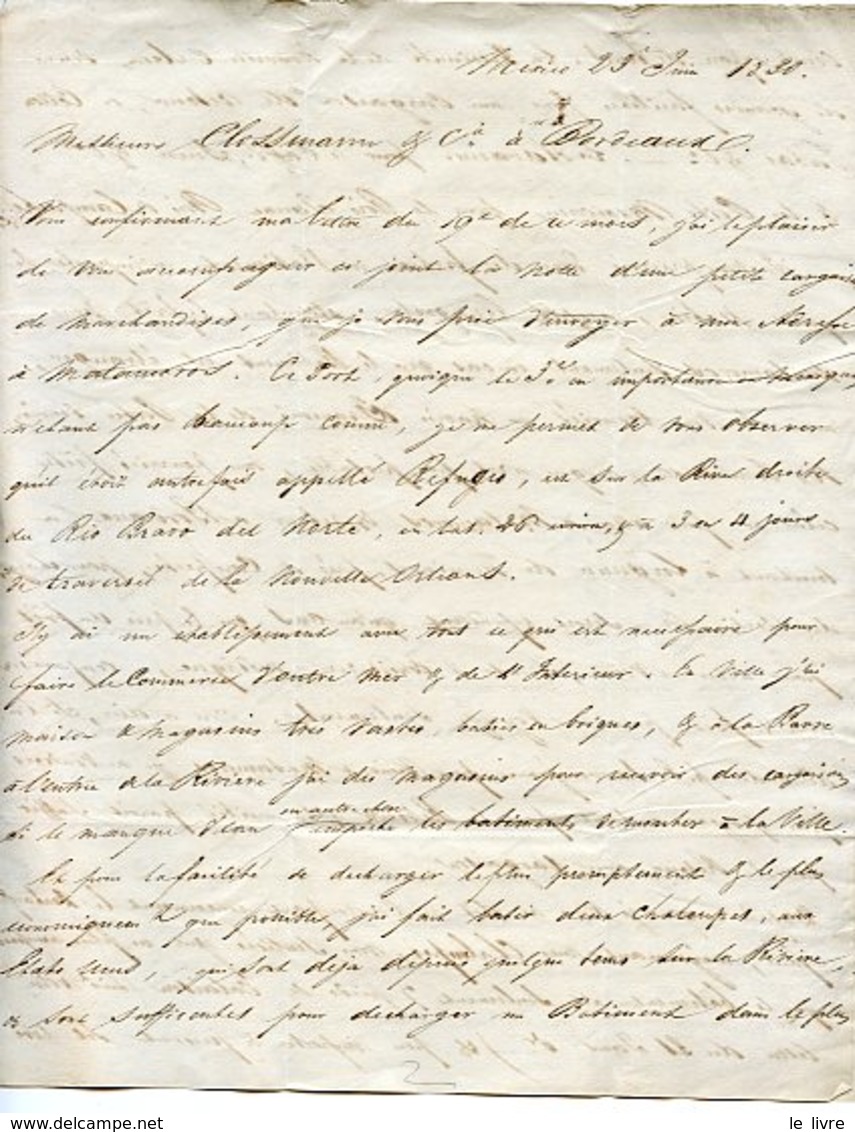 Mexico 23 Juin 1830.
Messieurs Clossmann & Cie à Bordeaux.
Vous confirmant ma lettre du 19e de ce mois, j'ai le plaisir
de vous accompagner ci joint la notte d'une petite cargaison
de marchandises, que je vous prie d'envoyer à mon adresse
à Matamoros. Ce Port, quoique le 3e en importance
n'etant pas beaucoup connu, je me permet de vous observer
qu'il etoit autrefois appellé Refugio, est sur la Rive droite
du Rio Bravo del Norte, en lat. 26. environ, & à 3 ou 4 jours
de traversée de la Nouvelle Orleans.
J'y ai un etablissement avec tout ce qui est necessaire pour
faire le Commerce d'outre mer & de l'Interieur. En Ville j'ai
maison & magasins tres vastes, batis en briques, & à la Barre
à l'entrée de la Riviere j'ai des magasins pour recevoir des cargaisons
si le manque d'eau ou autre chose empeche les batiments de monter à la Ville.
Et pour la facilité de decharger le plus promptement & le plus
economiquemt que possible, j'ai fait batir deux Chaloupes, aux
Etats Unis, qui sont deja depuis quelque tems sur la Riviere,
& sont suffisantes pour decharger un Batiment dans le plus
2
le livre